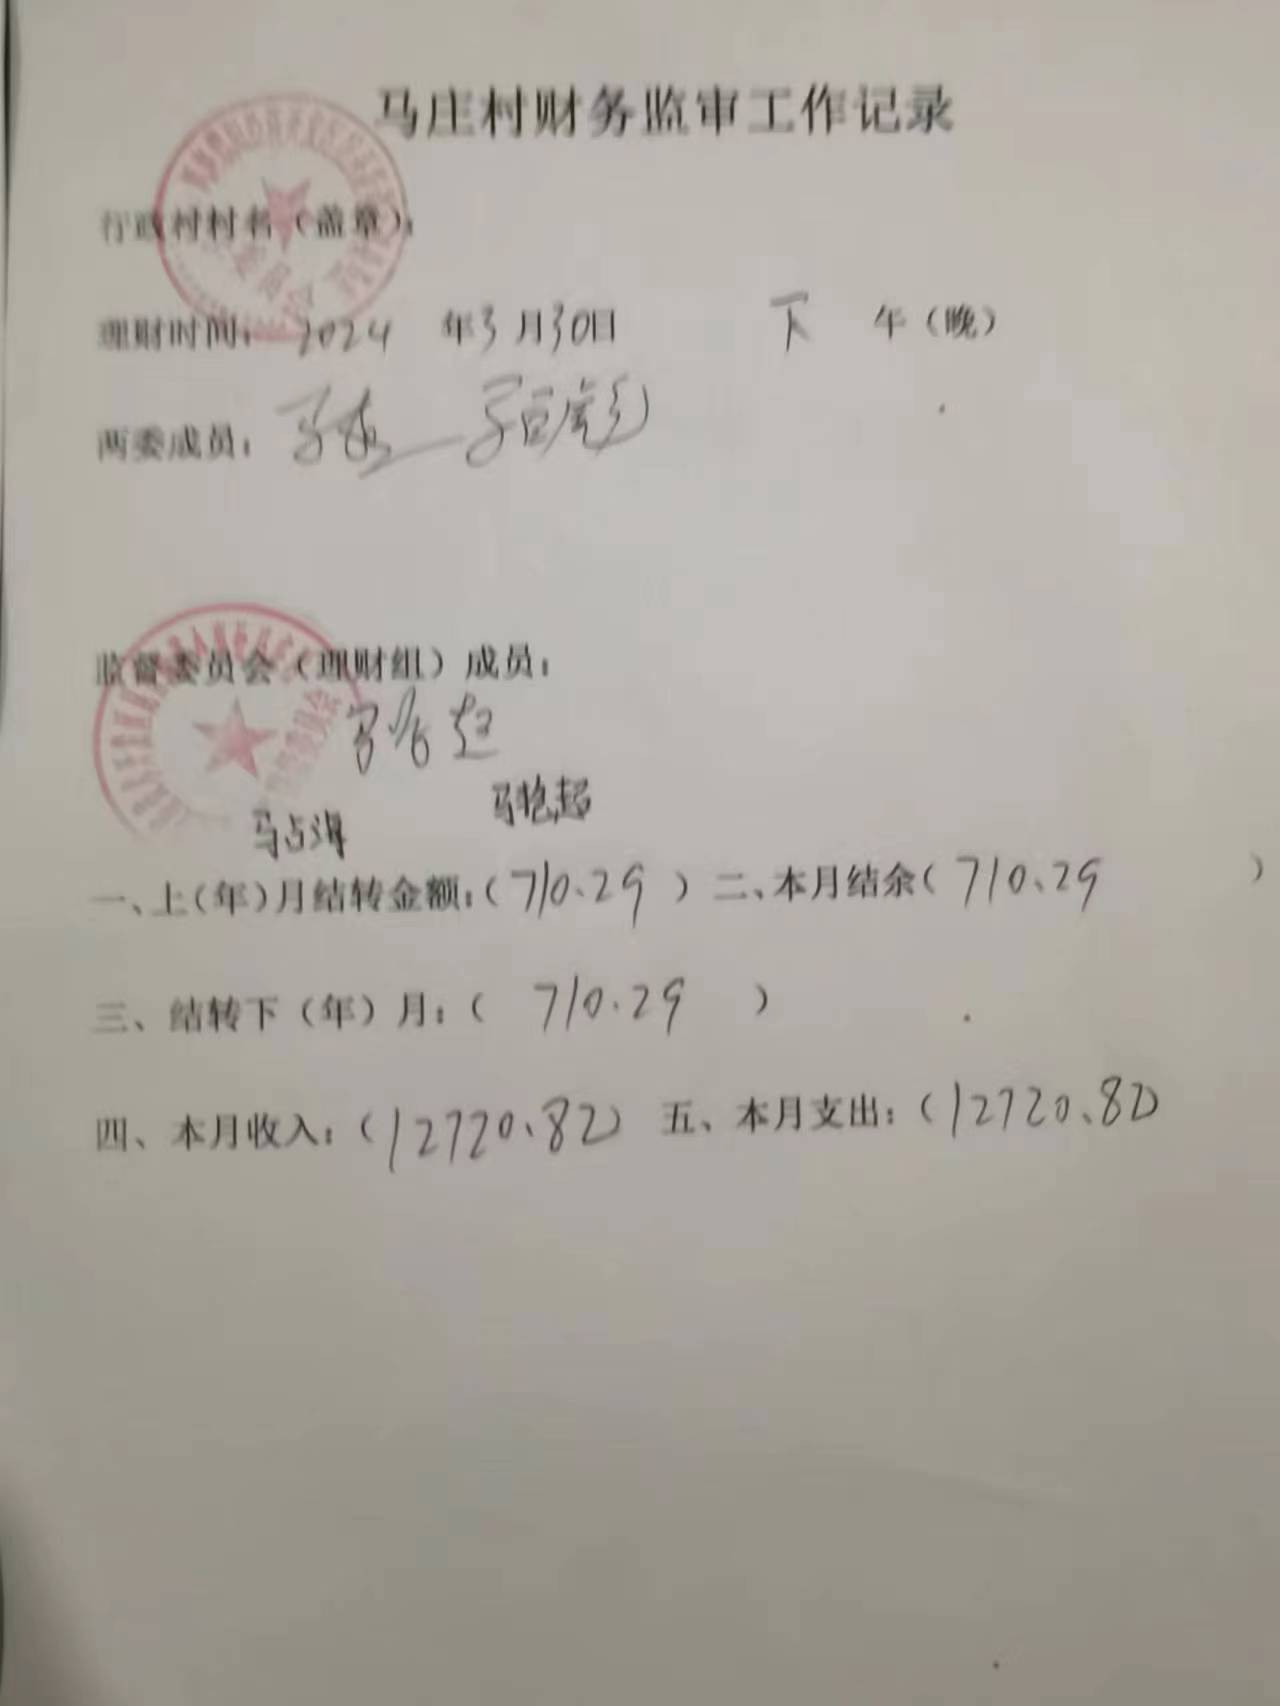 马庄村财务监审工作记录
行政村村名（盖章）：
理财时间：2024 年3月30日 下 午（晚）
两委成员：马
监督委员会（理财组）成员：
马占 马艳超
一、上(年)月结转金额：(710.29) 二、本月结余(710.29)
三、结转下（年）月：( 710.29 )
四、本月收入：(12720.82) 五、本月支出：(12720.82)